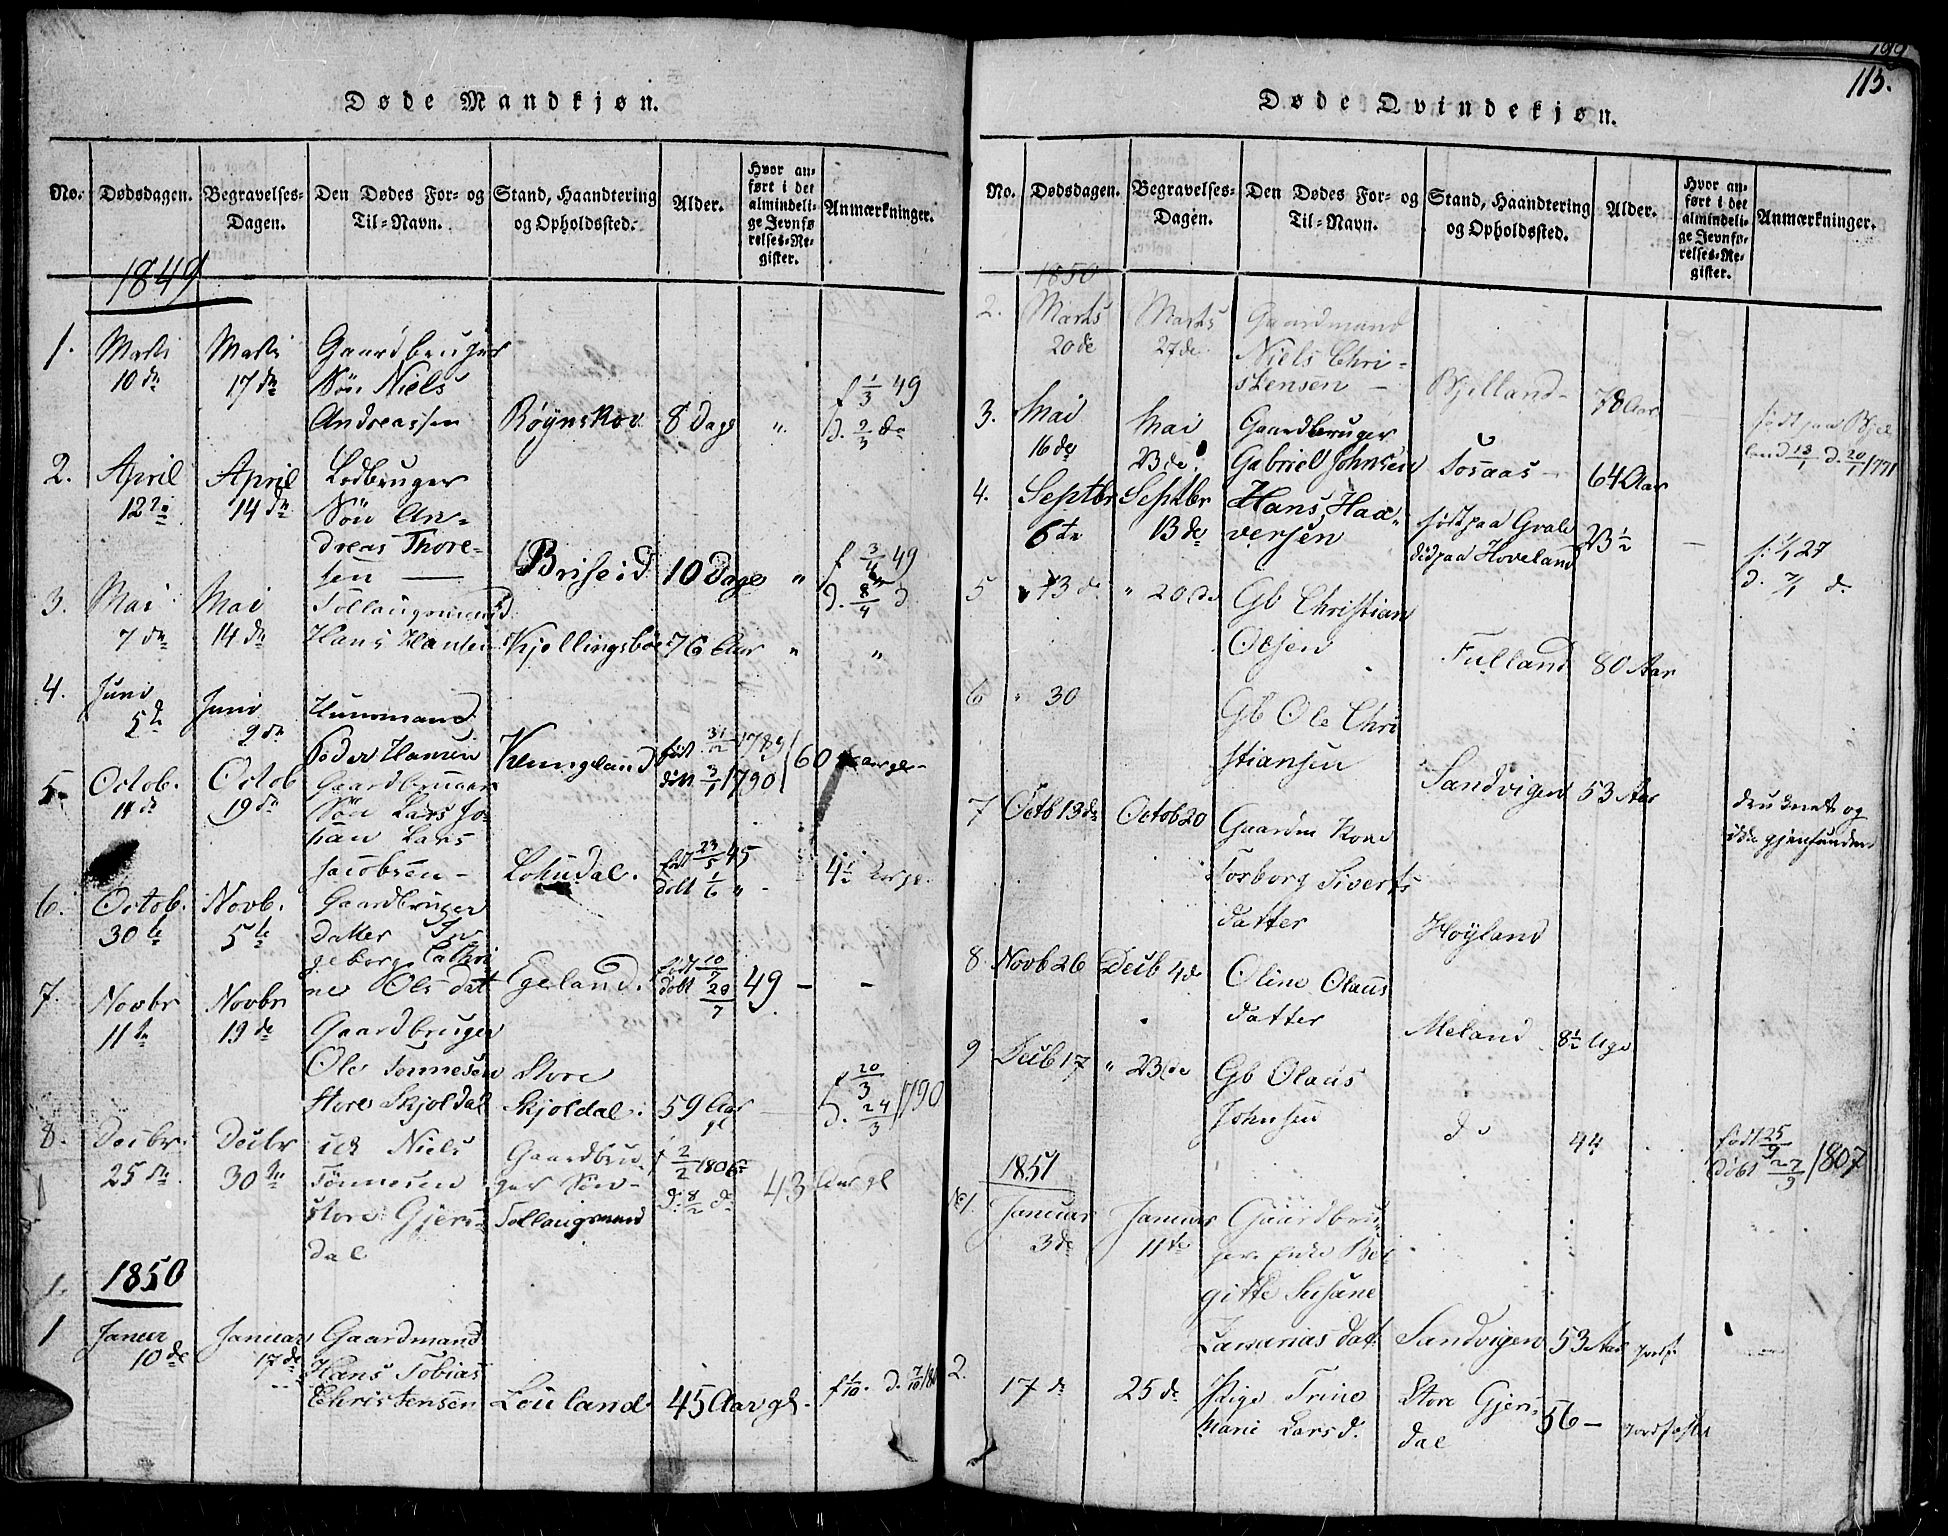 Døde Mandkjøn.
No.
Dødsdagen.
Begravelses-
Dagen.
Den Dødes For- og
Til-Navn.
Stand, Haandtering
og Opholdssted.
Alder.
Hvor an-
ført i det
almindeli-
ge Jevnfø-
relses-Re-
gister.
Anmærkninger.
1849
1.
10 de
17 de
Gaardbruger
Søn Niels
Andreassen
Røynskov
8 Dage
"
f 1/3 49
D. 2/3 do
2.
April
12 te
April
14 de
Lodbruger
Søn An-
dreas Thore-
sen
Briseid
10 Dage
"
f 3/4 49
D. 8/4 d
3.
Mai
7 de
Mai
14 de
Tollaugsmand
Hans Hansen
Kjellingsbøe
76 Aar
"
"
4.
Juni
5 te
Juni
9 de
Huusmand
Peder Hansen
født 31/12 1789
døbt 3/1 1790
60 Aar gl.
5.
Octob.
11 te
Octob
19 de
Gaardbruger
Søn Lars Jo-
han Lars
Jacobsen
født 23/5 45
døbt 1/6 "
4 1/2 Aar gl.
6.
Octob.
30 te
Novb.
5 te
Gaardbruger
datter In-
geborg Cathri
ne Olsdat
Egeland.
født 10/7
døbt 20/7
49
-
-
7.
Novbr
11 te
Novbr
19 de
Gaardbruger
Ole Tønnesen
Store Skjoldal
Store
Skjoldal
59 Aar
gl
f 20/3
D. 24/3 1790
8.
Decbr.
25 de
Decbr
30 te
Niels
Tønnesen
Store Gjers-
dal
Gaardbru-
ger Søn
Tollaugsmand
f 2/2 1806
d. 8/2 do
43 Aar gl
1.
1850
1
Januar
10 de
Januar
17 de
Gaardmand
Hans Tobias
Christensen
Løuland
45 Aar gl.
f 1/10. d. 7/10
199
115.
Døde Qvindekjøn.
No.
Dødsdagen.
Begravelses-
Dagen.
Den Dødes For- og
Til-Navn.
Stand, Haandtering
og Opholdssted.
Alder.
Hvor an-
ført i det
almindeli-
ge Jevnfø-
relses-Re-
gister.
Anmærkninger.
1850
2.
Marts
20 de
Marts
27 de
Gaardmand
Niels Chri-
stensen
Bjelland
78 Aar
født paa Bjel
land 13/1 d. 20/1 1771
3.
Mai
16 de
Mai
23 de
Gaardbruger
Gabriel Johnsen
Tosaas
64 Aar
4.
Septbr
6 te
Septbr
13 de
Hans Haa-
versen
født paa Qvale
død paa Hoveland
23 1/2
-
f. 1/1 27
d. 7/1 d.
5
" 13 de
" 20 de
Gb Christian
Olsen
Fulland
80 Aar
6
" 30
Gb Ole Chri
stiansen
Sandvigen
53 Aar
druknet og
ikke gjenfunden
7
Octb 13 de
Octob 20
Gaardm Kone
Torborg Siverts
datter
Høyland
8
Novb 26
Decb 4 de
Oline Olaus
datter
Meland
8 1/2 Uge
9
Decb 17
" 23 de
Gb Olaus
Johnsen
do
44
født 25/9
døbt 27/9 1807
1851
No 1.
Januar
3 de
Januar
11 te
Gaardbru-
ger Enke Bir-
gitte Susane
Zacarias dat.
Sandvigen
53 Aar
jordf.
2.
17 de
25 de
Pige Trine
Marie Lars d.
Store Gjers-
dal
56 -
jordfæstet